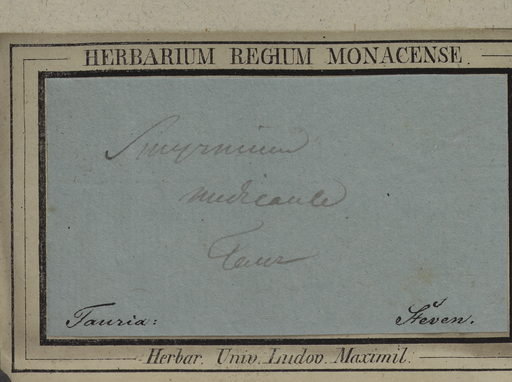 HERBARIUM REGIUM MONACENSE
Smyrnium
nudicaule
Taur
Tauria: Steven.
Herbar. Univ. Ludov. Maximil.